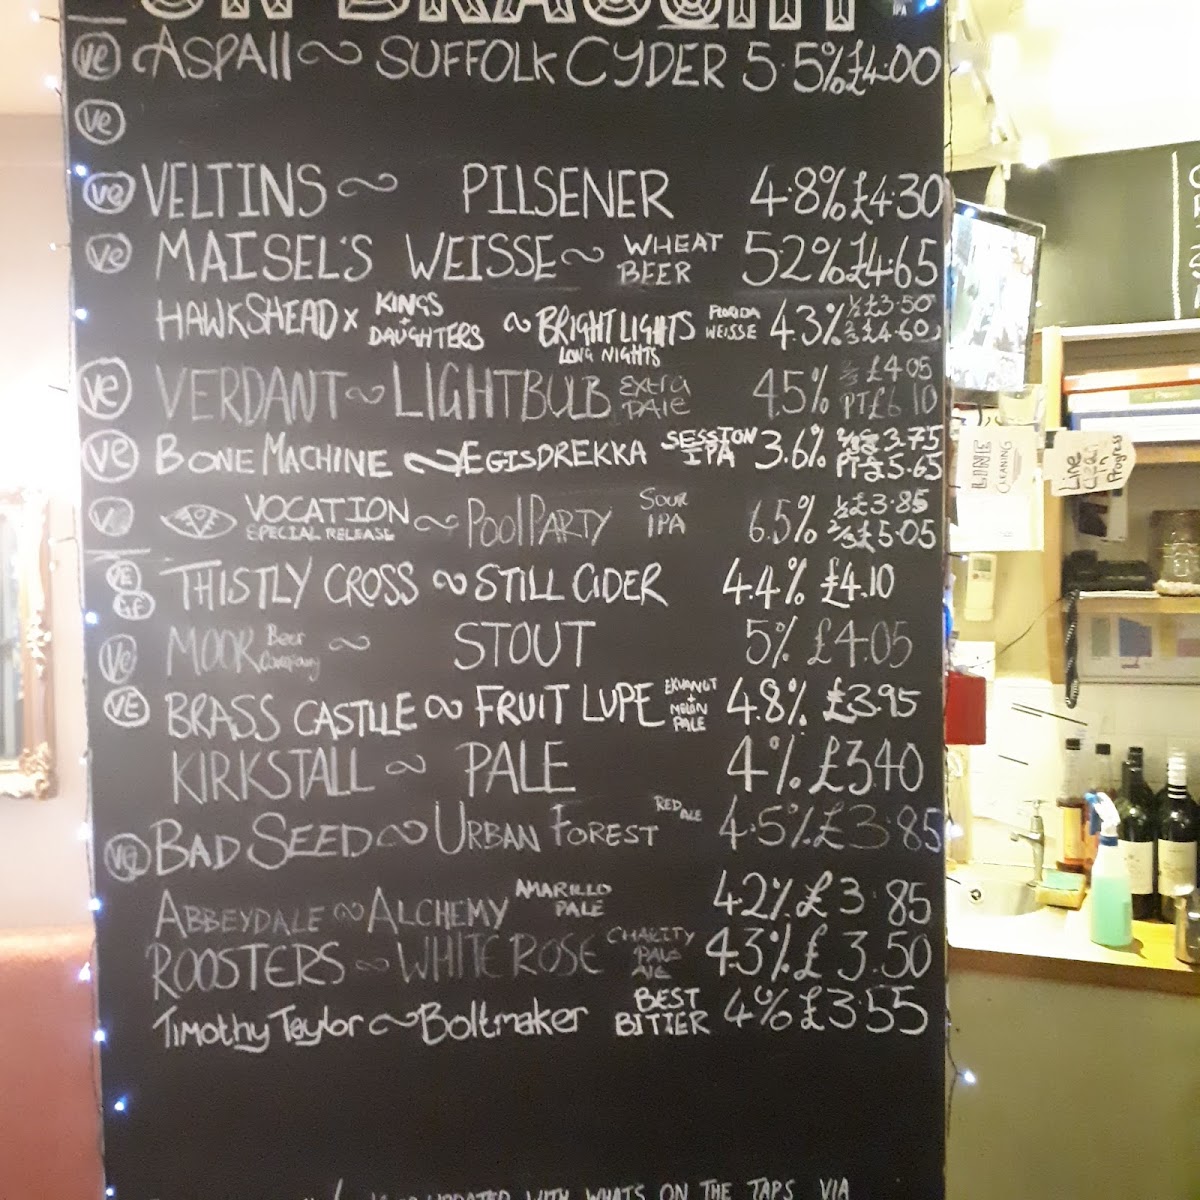 ON DRAUGHT
Ve ASPAll ~ SUFFOLK CYDER 5.5% £4.00
Ve
Ve VELTINS ~ PILSENER 4.8% £4.30
Ve MAISEL'S WEISSE ~ WHEAT BEER 5.2% £4.65
HAWKSHEAD x KINGS + DAUGHTERS ~ BRIGHT LIGHTS LONG NIGHTS FLORIDA WEISSE 4.3% ½ £3.50 ⅔ £4.60
Ve VERDANT ~ LIGHTBULB EXTRA PALE 4.5% ⅔ £4.05 PT £6.10
Ve BONE MACHINE ~ ÆGISDREKKA SESSION IPA 3.6% £3.75 PT £5.65
V VOCATION SPECIAL RELEASE ~ POOL PARTY SOUR IPA 6.5% ½ £3.85 ⅔ £5.05
VE GF THISTLY CROSS ~ STILL CIDER 4.4% £4.10
Ve MOOR Beer Company ~ STOUT 5% £4.05
VE BRASS CASTLE ~ FRUIT LUPE + MELON PALE 4.8% £3.95
KIRKSTALL ~ PALE 4% £3.40
BAD SEED ~ URBAN FOREST RED ALE 4.5% £3.85
ABBEYDALE ~ ALCHEMY AMARILLO PALE 4.2% £3.85
ROOSTERS ~ WHITE ROSE CHARITY PALE ALE 4.3% £3.50
Timothy Taylor ~ Boltmaker BEST BITTER 4% £3.55
UPDATED WITH WHAT'S ON THE TAPS VIA
LINE CLEANING
Line Clean In Progress